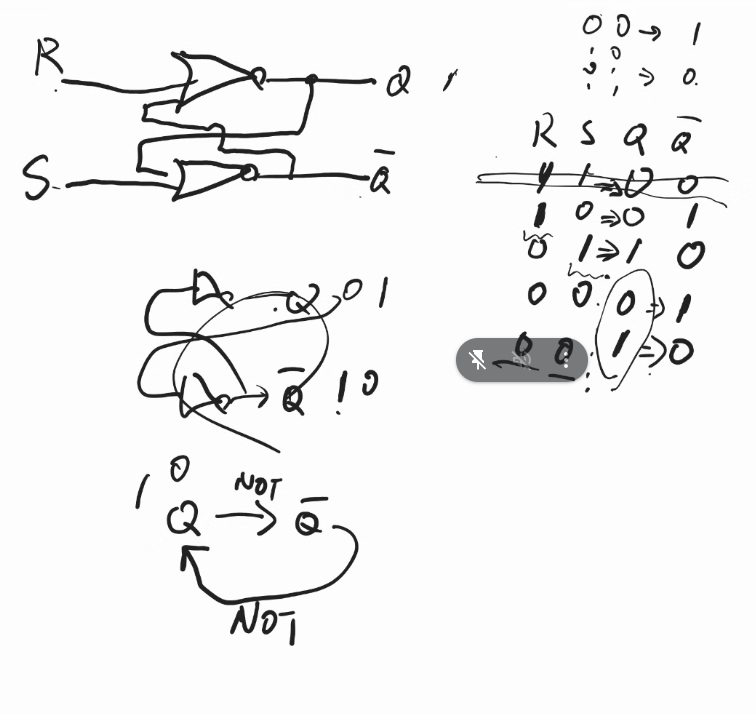 0 0 → 1
→ 0
R Q
S Q̅
R S Q Q̅
1 1 ⇒ 0 0
1 0 ⇒ 0 1
0 1 ⇒ 1 0
0 0 0 → 1
0 0 1 ⇒ 0
Q 0 1
Q̅ 1 0
1 0
Q NOT Q̅
NOT